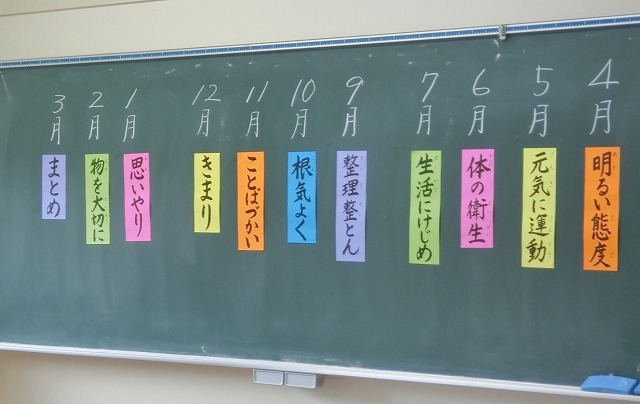 4月
明るい態度
5月
元気に運動
6月
体の衛生
7月
生活にけじめ
9月
整理整とん
10月
根気よく
11月
ことばづかい
12月
きまり
1月
思いやり
2月
物を大切に
3月
まとめ